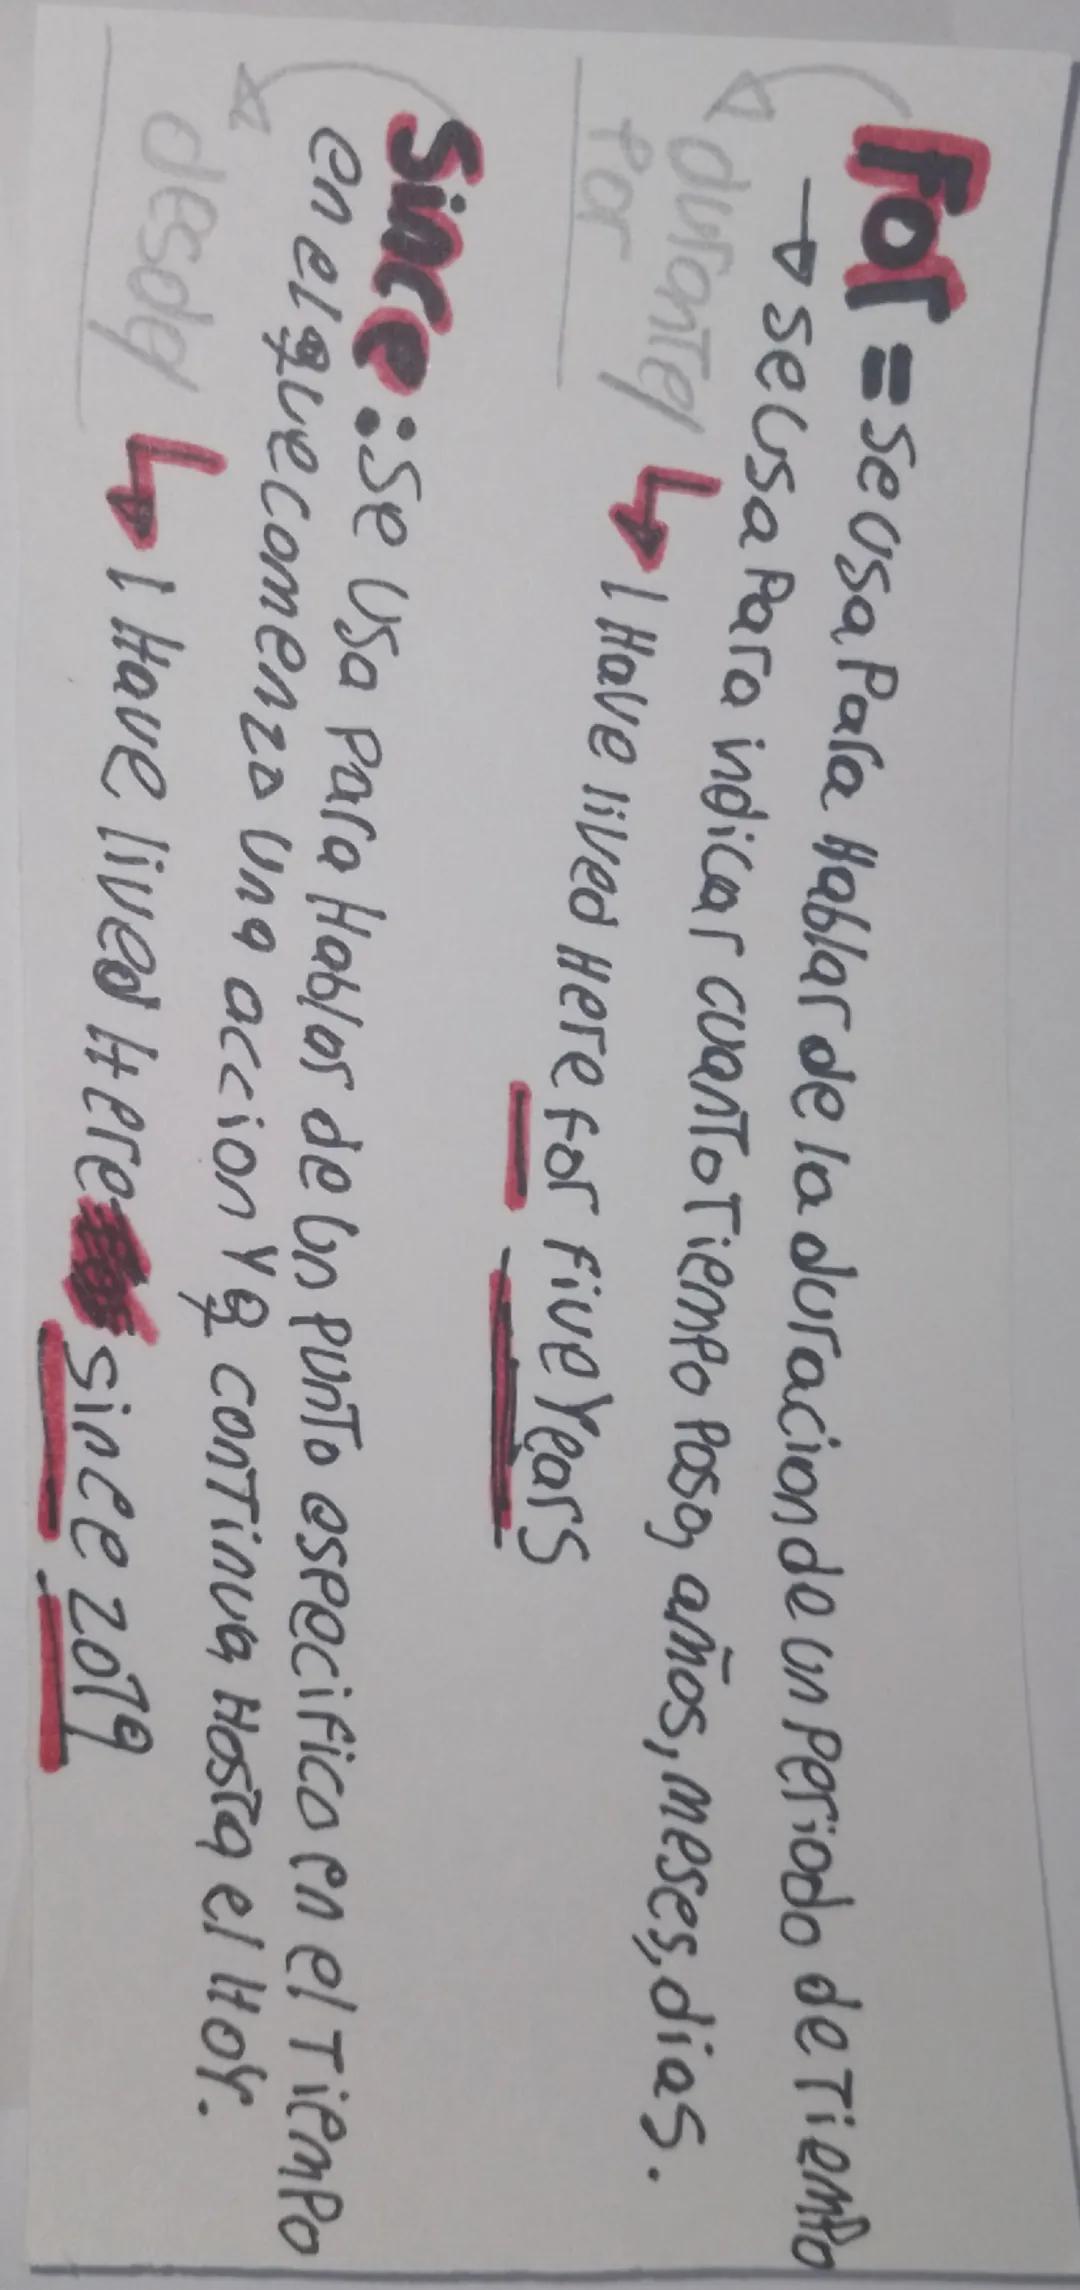 For = se usa Para Hablar de la duracion de un Periodo de Tiempo
→ se usa Para indicar cuanTo Tiempo Paso, años, meses, dias.
duranTe/
Por
↳ I Have lived Here For Five Years
Since: Se Usa Para Hablar de Un PunTo especifico en el Tiempo
en el que comenzo una accion y q conTinua HasTa el Hoy.
desde/
↳ I Have lived Here since 2019